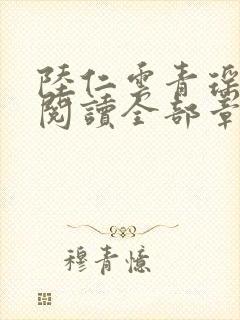 陸仁雲青瑤
閱讀全部章
穆青憶